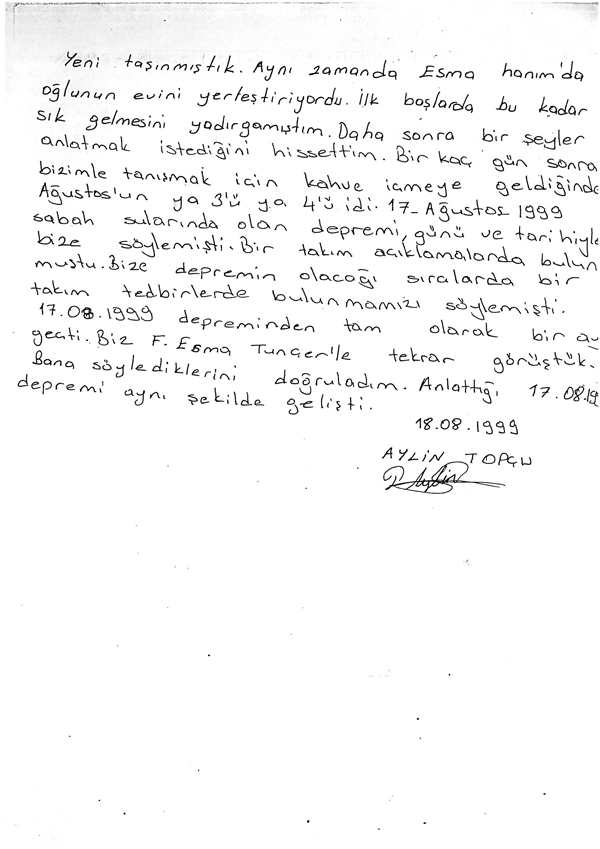 Yeni taşınmıştık. Aynı zamanda Esma hanım'da
oğlunun evini yerleştiriyordu. İlk başlarda bu kadar
sık gelmesini yadırgamıştım. Daha sonra bir şeyler
anlatmak istediğini hissettim. Bir kaç gün sonra
bizimle tanışmak için kahve içmeye geldiğinde
Ağustos'un ya 3'ü ya 4'ü idi. 17-Ağustos 1999
sabah sularında olan depremi, günü ve tarihiyle
bize söylemişti. Bir takım açıklamalarda bulun
muştu. Bize depremin olacağı sıralarda bir
takım tedbirlerde bulunmamızı söylemişti.
17.08.1999 depreminden tam olarak bir ay
geçti. Biz F. Esma Tuncer'le tekrar görüştük.
Bana söylediklerini doğruladım. Anlattığı 17.08.19
depremi aynı şekilde gelişti.
18.08.1999
AYLİN TOPÇU